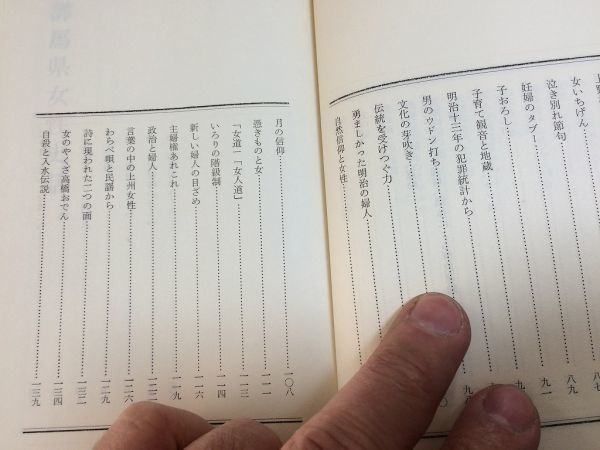 女いちげん……八七
泣き別れ節句……八九
妊婦のタブー……九一
子おろし……九
子育て観音と地蔵
明治十三年の犯罪統計から……九
男のウドン打ち
文化の芽吹き……一〇
伝統を受けつぐ力
勇ましかった明治の婦人
自然信仰と女性
月の信仰……一〇八
憑きものと女……一一一
「女道」「女人道」……一一三
いろりの階級制……一一四
新しい婦人の目ざめ……一一六
主婦権あれこれ……一一九
政治と婦人……一二二
言葉の中の上州女性……一二六
わらべ唄と民謡から……一二九
詩に現われた二つの面……一三二
女のやくざ高橋おでん……一三四
自殺と入水伝説……一三九
群馬県女